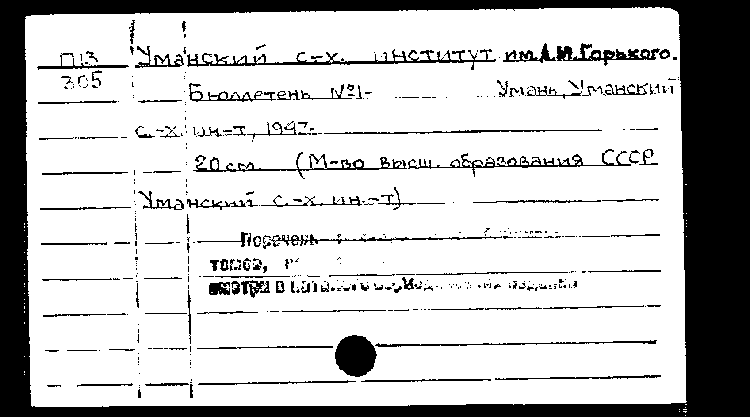 П13 Уманский с-х. институт им. А.М. Горького.
305
Бюллетень №1- Умань, Уманский
с.-х. ин-т, 1947-
20 см. (М-во высш. образования СССР
Уманский с.-х. ин.-т)
Перечень
томов,
смотри в каталоге изданий